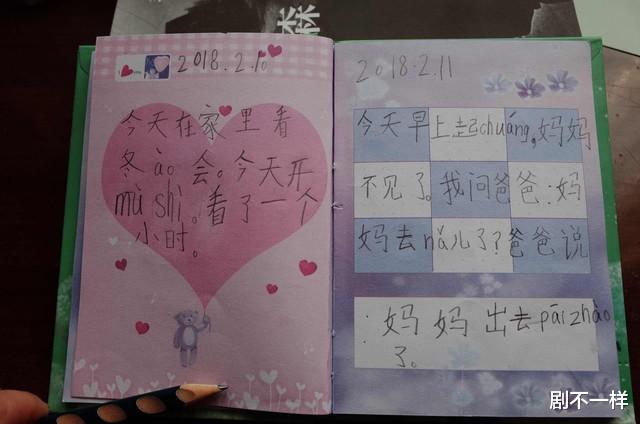 森
2018.2.10
今天在家里看
冬ào会。今天开
mù shì。看了一个
小时。
2018.2.11
今天早上起chuáng,妈妈
不见了。我问爸爸:妈
妈去nǎ儿了?爸爸说
:妈妈出去pāizhào
了。
剧不一样